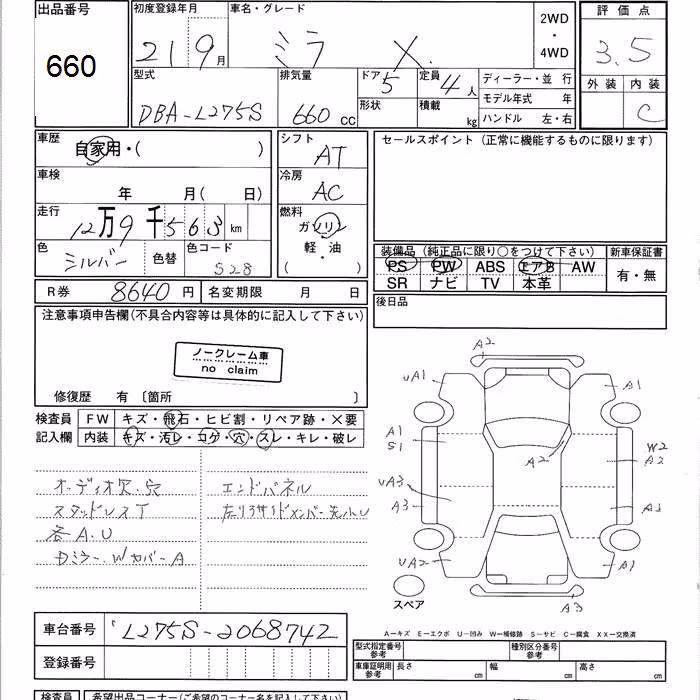 出品番号
660
初度登録年月
21 9月
車名・グレード
ミラ X
2WD
・
4WD
評価点
3.5
外装 内装
C
型式
DBA-L275S
排気量
660 cc
ドア 5
形状
定員 4人
積載 kg
ディーラー・並行
モデル年式 年
ハンドル 左・右
車歴
自家用・( )
車検
年 月( 日)
走行
12万9千563 km
色
シルバー
色替
色コード
S28
シフト
AT
冷房
AC
燃料
ガソリン
軽・油
( )
セールスポイント(正常に機能するものに限ります)
装備品(純正品に限り○をつけて下さい)
PS PW ABS エアB AW
SR ナビ TV 本革
新車保証書
有・無
R券 8640円
名変期限 月 日
後日品
注意事項申告欄(不具合内容等は具体的に記入して下さい)
ノークレーム車
no claim
修復歴 有〔箇所 〕
検査員
記入欄
FW キズ・飛石・ヒビ割・リペア跡・X要
内装 キズ・汚レ・コゲ・穴・スレ・キレ・破レ
オーディオ欠・穴
スタッドレスT
各A.U
Dミラー、WカバーA
エンドパネル
A2
uA1
A1
A1
S1
A2
W2
A2
uA3
A3
A3
uA2
A1
A3
スペア
車台番号
L275S-2068742
登録番号
A-キズ E-エクボ U-凹み W-補修跡 S-サビ C-腐食 XX-交換済
型式指定番号
参考
種別区分番号
参考
車庫証明用
参考
長さ cm
幅 cm
高さ cm
検査員
希望出品コーナー(ご希望のコーナー名を記入下さい)